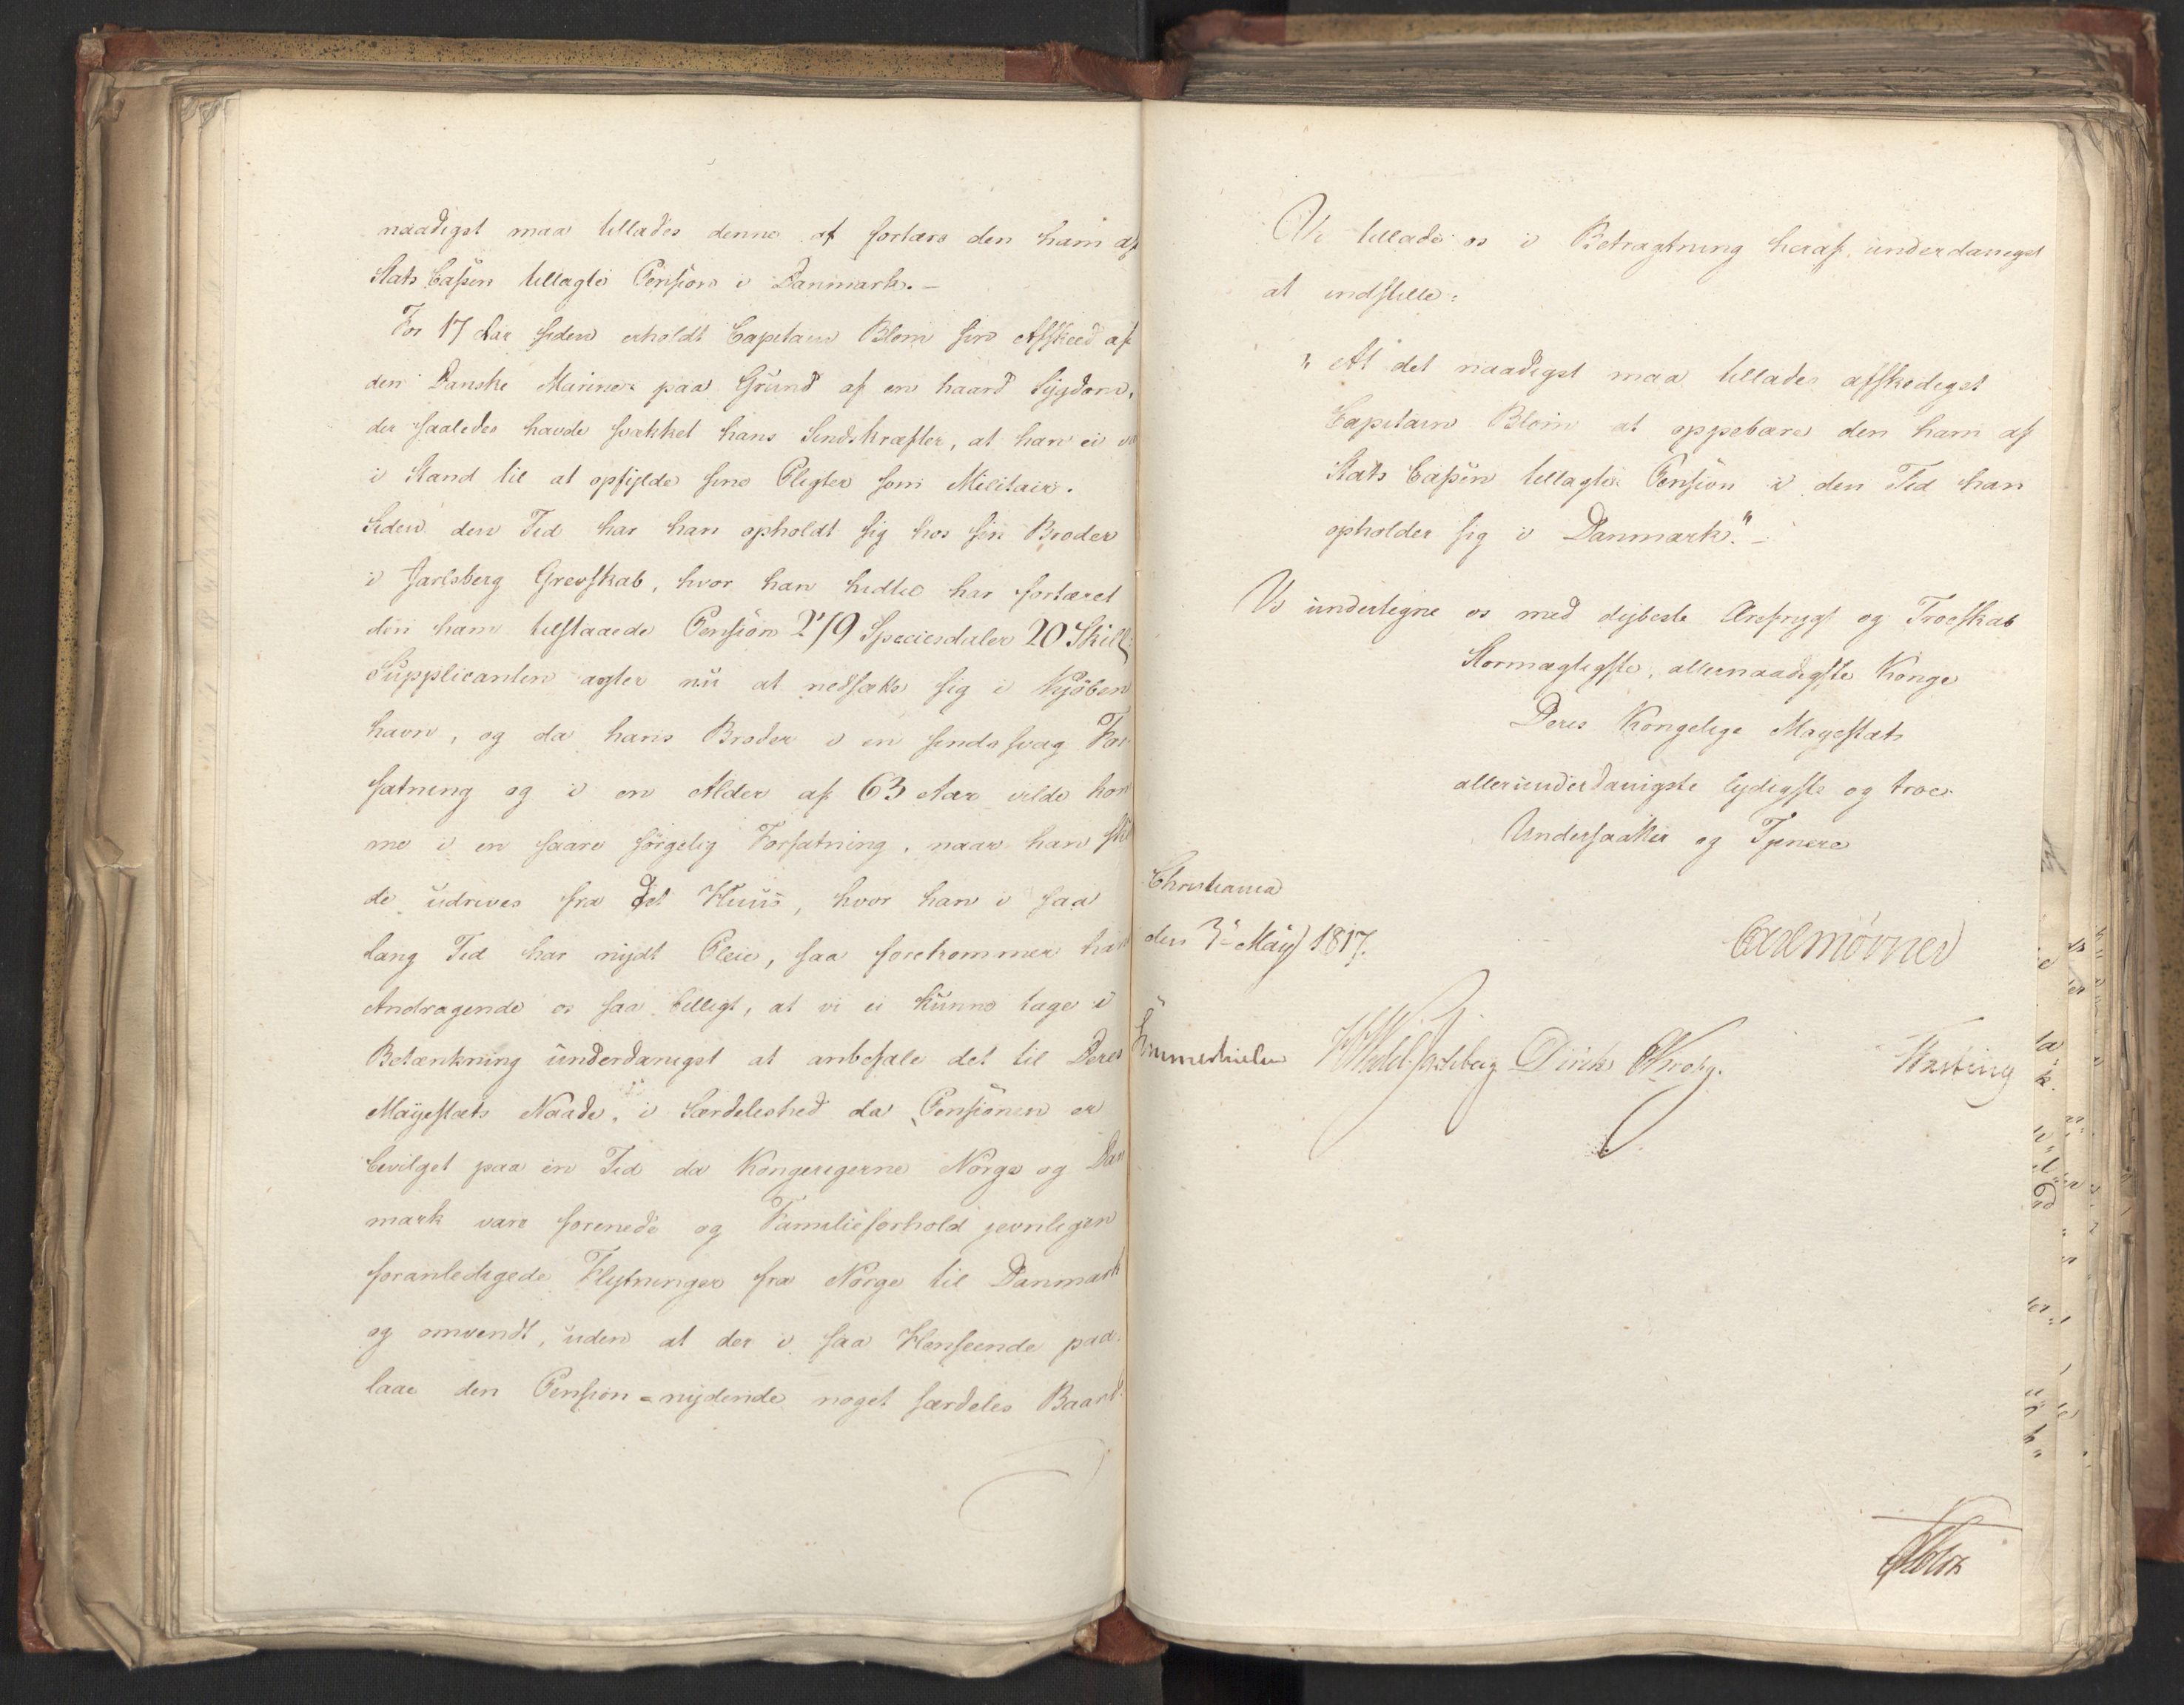 naadigst maa tillades denne at fortære den ham af
Stats Cassen tillagte Pension i Danmark. -
For 17 Aar siden erholdt Capitain Blom sin Afskeed af
den Danske Marine paa Grund af en haard Sygdom,
der saaledes havde svækket hans Sindskræfter, at han ei
i Stand til at opfylde sine Pligter som Militair.
Siden den Tid har han opholdt sig hos sin Broder
i Jarlsberg Grevskab, hvor han hidtil har fortæret
den ham tilstaaede Pension 279 Speciesdaler 20 Skill:
Supplicanten agter nu at nedsætte sig i Kjøben
havn, og da hans Broder i en sindssvag For
fatning og i en Alder af 63 Aar vilde kom
me i en saare sørgelig Forfatning, naar han sk
de udrives fra det Huus, hvor han i saa
lang Tid har nydt Pleie, saa forekommer ha
Andragende os saa billigt, at vi ei kunne tage i
Betænkning underdanigst at anbefale det til Deres
Mayestæts Naade, i Særdeleshed da Pensionen er
bevilget paa en Tid da Kongerigerne Norge og Dan
mark vare forenede og Familieforhold jevnligen
foranledigede Flytninger fra Norge til Danmark
og omvendt, uden at der i saa Henseende paa
laae den Pension-nydende noget særdeles Baand.
Vi tillade os i Betragtning heraf underdanigst
at indstille:
"At det naadigst maa tillades afskediget
Capitain Blom at oppebære den ham af
Stats Cassen tillagte Pension i den Tid han
opholder sig i Danmark." -
Vi undertegne os med dybeste Ærefrygt og Troeskab
Stormægtigste, allernaadigste Konge
Deres Kongelige Mayestæts
allerunderdanigste lydigste og troe
Undersaatter og Tjenere
Christiania
den 3e May 1817.
Carl Mörner
Sommerhielm HWedel Jarlsberg Diriks CKrohg. Fasting
Holst